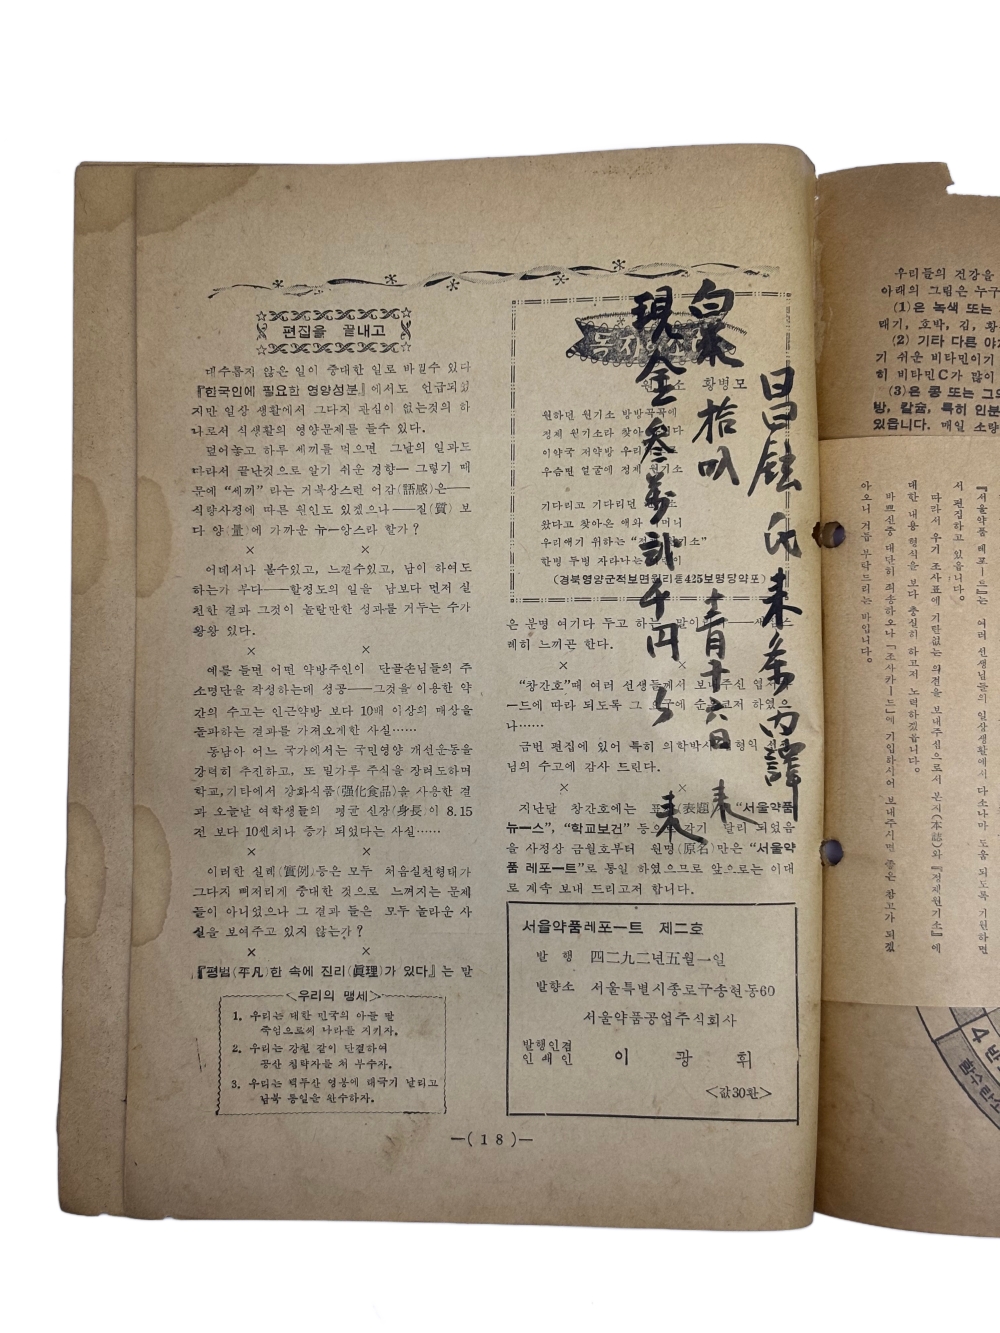 편집을 끝내고
대수롭지 않은 일이 중대한 일로 바뀔수 있다
『한국인에 필요한 영양성분』에서도 언급되었
지만 일상 생활에서 그다지 관심이 없는것의 하
나로서 식생활의 영양문제를 들수 있다.
덮어놓고 하루 세끼를 먹으면 그날의 일과도
다라서 끝난것으로 알기 쉬운 경향— 그렇기 때
문에 “세끼” 라는 거북상스런 어감(語感)은——
식량사정에 따른 원인도 있겠으나——질(質) 보
다 양(量)에 가까운 뉴—앙스라 할가?
× ×
어데서나 볼수있고, 느낄수있고, 남이 하여도
하는가 부다——할정도의 일을 남보다 먼저 실
천한 결과 그것이 놀랄만한 성과를 거두는 수가
왕왕 있다.
× ×
예를 들면 어떤 약방주인이 단골손님들의 주
소명단을 작성하는데 성공——그것을 이용한 약
간의 수고는 인근약방 보다 10배 이상의 매상을
돌파하는 결과를 가져오게한 사실……
동남아 어느 국가에서는 국민영양 개선운동을
강력히 추진하고, 또 밀가루 주식을 장려도하며
학교,기타에서 강화식품(强化食品)을 사용한 결
과 오늘날 여학생들의 평균 신장(身長)이 8.15
전 보다 10쎈치나 증가 되었다는 사실……
× ×
이러한 실례(質例)등은 모두 처음실천형태가
그다지 뼈저리게 중대한 것으로 느껴지는 문제
들이 아니었으나 그 결과 들은 모두 놀라운 사
실을 보여주고 있지 않는가?
× ×
『평범(平凡)한 속에 진리(眞理)가 있다』는 말
<우리의 맹세>
1. 우리는 대한 민국의 아들 딸
죽엄으로써 나라를 지키자.
2. 우리는 강철 같이 단결하여
공산 침략자를 처 부수자.
3. 우리는 백두산 영봉에 태극기 날리고
남북 통일을 완수하자.
황병모
원하던 원기소 방방곡곡에
정제 원기소라 찾아
이약국 저약방 우리
우슴띤 얼굴에 정제 원기소
기다리고 기다리던
왔다고 찾아온 애와 어머니
우리애기 위하는
한병 두병 자라나는
(경북영양군적보면월리 425보명당약포)
은 분명 여기다 두고 하는 말이
레히 느끼곤 한다.
× ×
“창간호”때 여러 선생들께서 보내주신 엽서
ー드에 따라 되도록 그 요구에 순응코저 하였으
나……
금번 편집에 있어 특히 의학박사 형익
님의 수고에 감사 드린다.
×
지난달 창간호에는 표제(表題) “서울약품
뉴—스”, “학교보건” 등으로 각기 달리 되었음
을 사정상 금월호부터 원명(原名)만은 “서울약
품 레포—트”로 통일 하였으므로 앞으로는 이대
로 계속 보내 드리고저 합니다.
서울약품레포—트 제二호
발 행 四二九二년五월一일
발향소 서울특별시종로구송현동60
서울약품공업주식회사
발행인겸
인쇄인 이 광 휘
<값30환>
—( 1 8 )—
昌鉉氏来条内訳
白米拾叺 十二月十六日 来
現金参萬弐千円 来
우리들의 건강을
아래의 그림은 누구
(1)은 녹색 또는
태기, 호박, 김, 황
(2) 기타 다른 야채
기 쉬운 비타민이기
히 비타민C가 많이
(3)은 콩 또는 그의
방, 칼슘, 특히 인분
있읍니다. 매일 소량
『서울약품 레포—트』는 여러 선생님들의 일상생활에서 다소나마 도움 되도록 기원하면
서 편집하고 있읍니다.
다라서 우기 조사표에 기탄없는 의견을 보내주심으로서 본지(本誌)와 『정제원기소』에
대한 내용 형식을 보다 충실히 하고저 노력하겠읍니다.
바쁘신중 대단히 죄송하오나 『조사카—드』에 기입하시어 보내주시면 좋은 참고가 되겠
아오니 거듭 부탁드리는 바입니다.